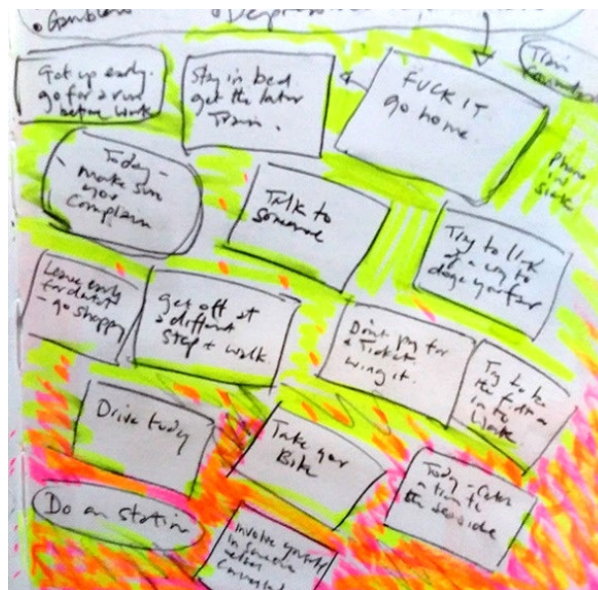 Gamblers
Get up early.
go for a run
before work
Stay in bed
get the later
Train.
FUCK IT
go home.
Train
Phone
in
sick
Today -
make sure
you
complain
Talk to
someone
Try to think
of a way to
doge your fare
Leave early
for debut
- go shopping
get off at
a different
stop + walk.
Dont pay for
a Ticket
wing it.
Try to be
the first
in to
Work
Drive today
Take your
Bike
Today - Catch
a train to
the seaside
Do an station
Involve yourself
in someone